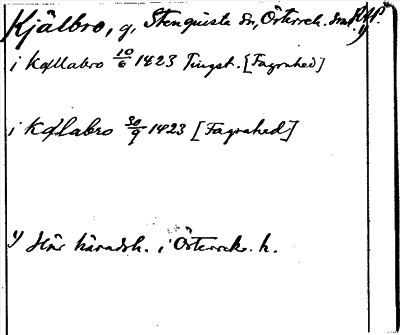 Kjälbro, g, Stenquista sn, Österrek. hd. RAP.
i Kællabro 10/6 1423 Tingst. [Fagrahed]
i Kælabro 30/9 1423 [Fagrahed]
1) Här häradsh. i Österreke. h.